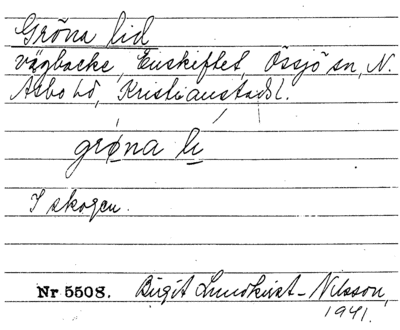 Gröna lid
vägbacke, Enskiftet, Össjö sn, N.
Åsbo hd, Kristianstads l.
grøna li
I skogen.
Nr 5508. Birgit Lundkvist-Nilsson,
1941.